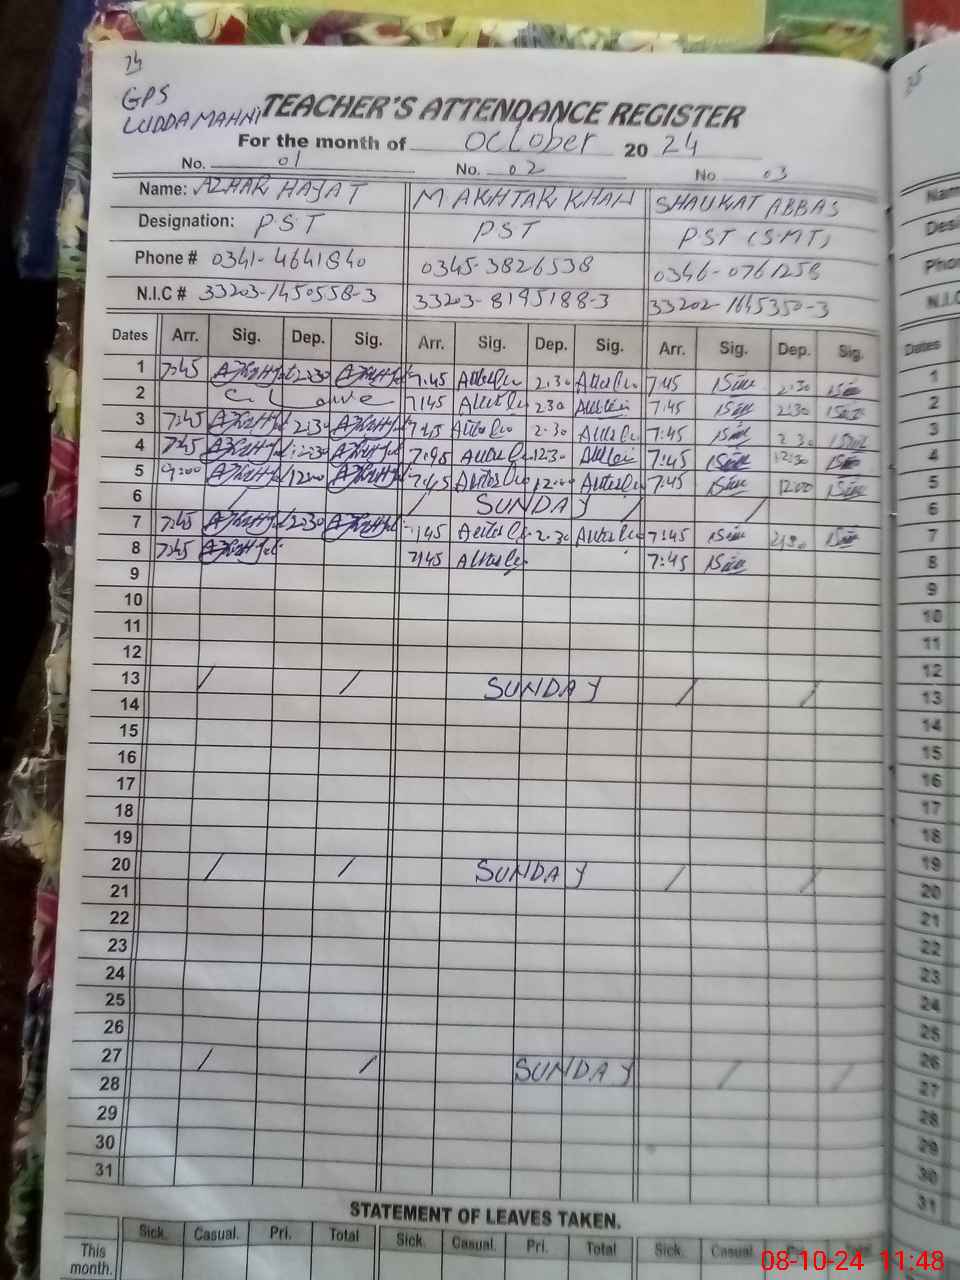 24
GPS
LUDDAMAHNI TEACHER'S ATTENDANCE REGISTER
For the month of October 2024
No. 01 No. 02 No 03
Name: AZHAR HAYAT M AKHTAR KHAN SHAUKAT ABBAS
Designation: PST PST PST (S.M.T)
Phone # 0341-4641840 0345-3826538 0346-0761258
N.I.C # 33203-1450558-3 33203-8195188-3 33202-1645350-3
Dates Arr. Sig. Dep. Sig. Arr. Sig. Dep. Sig. Arr. Sig. Dep. Sig.
1 7:45 2:30 7:45 2:30 7:45 2:30
2 7:45 2:30 7:45 2:30
3 7:45 2:30 7:45 2:30 7:45 2:30
4 7:45 12:30 7:45 12:30 7:45 12:30
5 9:00 12:00 7:45 12:00 7:45 12:00
6 SUNDAY
7 7:45 2:30 7:45 2:30 7:45 2:30
8 7:45 7:45 7:45
9
10
11
12
13 SUNDAY
14
15
16
17
18
19
20 SUNDAY
21
22
23
24
25
26
27 SUNDAY
28
29
30
31
STATEMENT OF LEAVES TAKEN.
Sick. Casual. Pri. Total Sick. Casual. Pri. Total Sick. Casual.
This
month.
35
Dates
1
2
3
4
5
6
7
8
9
10
11
12
13
14
15
16
17
18
19
20
21
22
23
24
25
26
27
28
29
30
31
08-10-24 11:48